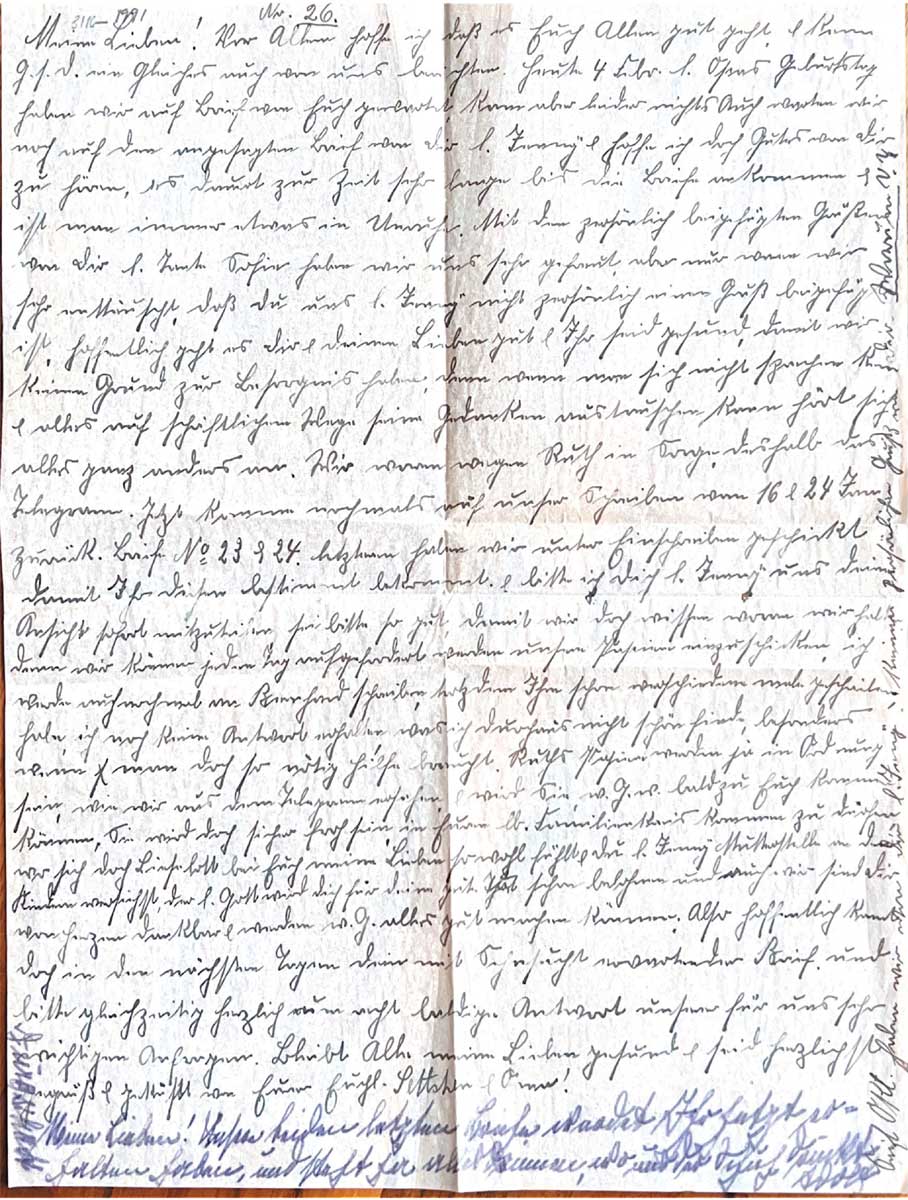 Nr. 26.
Meine Lieben! Vor Allem hoffe ich daß es Euch Allen gut geht, & kann
G. s. D. ein Gleiches auch von uns berichten. Heute 4 Febr. l. Geburtstag
haben wir auf Brief von Euch gewartet kam aber leider nichts Auch warten wir
noch auf den angesagten Brief von Dir l. Jenny & hoffe ich doch Gutes von Dir
zu hören, es dauert zur Zeit sehr lange bis die Briefe ankommen &
ist man immer etwas in Unruhe. Mit den persönlich beigefügten Grüßen
von Dir l. Tante Sofie haben wir uns sehr gefreut aber nur waren wir
sehr enttäuscht, daß Du uns l. Jenny nicht persönlich einen Gruß beigefügt
ist, hoffentlich geht es Dir & Deinen Lieben gut & Ihr seid gesund, damit wir
keinen Grund zur Besorgnis haben, denn wenn man sich nicht sprechen kann
& alles auf schriftlichem Wege seine Gedanken austauschen kann hört sich
alles ganz anders an. Wir waren wegen Ruth in Sorge, deshalb das
Telegramm. Jetzt komme nochmals auf unser Schreiben vom 16 & 24 Jan.
zurück. Briefe No 23 & 24. letzteren haben wir unter Einschreiben geschickt
damit Ihr diesen bestimmt bekommt. & bitte ich Dich l. Jenny uns Deine
Ansicht sofort mitzuteilen sei bitte so gut, damit wir doch wissen woran wir
denn wir können jeden Tag aufgefordert werden unsere Papiere einzuschicken, ich
werde auch nochmal an Bernhard schreiben, trotzdem Ihm schon verschiedene male geschrieben
habe, ich noch keine Antwort erhalten, was ich durchaus nicht schön finde, besonders
wenn man doch so nötig Hilfe braucht. Ruths Papiere werden ja in Ordnung
sein, wie wir aus dem Telegramm ersehen, & wird Sie, w. G. w. bald zu Euch kommen
können, Sie wird doch sicher froh sein, in Euren lb. Familienkreis kommen zu dürfen
wo sich doch Lieselott bei Euch meine Lieben so wohl fühlt & Du l. Jenny Mutterstelle an den
Kindern versiehst, der l. Gott wird Dich für Deine gute That schon belohnen und auch wir sind Dir
von Herzen dankbar & werden w. G. alles gut machen können. Also hoffentlich kommt
doch in den nächsten Tagen Dein mit Sehnsucht erwartender Brief. und
bitte gleichzeitig herzlich um recht baldige Antwort unserer für uns sehr
wichtigen Anfragen. Bleibt Alle meine Lieben gesund & seid herzlichst
gegrüßt & geküßt von Eurer Euch l.
Meine Lieben! Unsere beiden letzten Briefe werdet Ihr jetzt er-
halten haben, und
haben wir von Dir l. Jenny keinen persönlichen Gruß